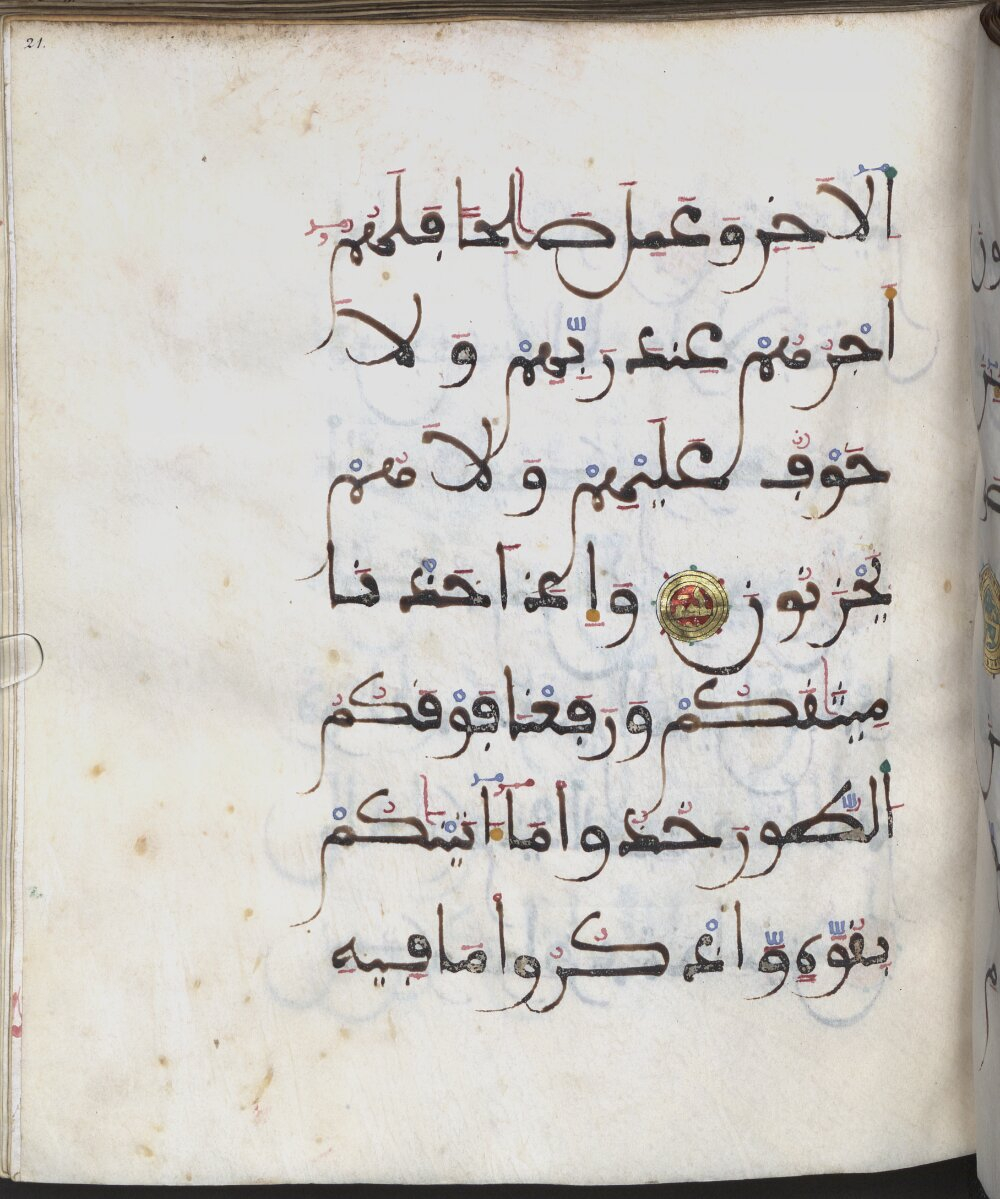 21.
الَاخِرِ وَعَمِلَ صَٰلِحًا فَلَهُمُۥٓ
أَجْرُهُمْ عِندَ رَبِّهِمْ وَلَا
خَوْفٌ عَلَيْهِمْ وَلَا هُمْ
يَحْزَنُونَ وَإِذَ اَخَذْنَا
مِيثَٰقَكُمْ وَرَفَعْنَا فَوْقَكُمُ
الطُّورَ خُذُواْ مَآ ءَاتَيْنَٰكُم
بِقُوَّةٍ وَّاذْكُرُواْ مَا فِيهِ